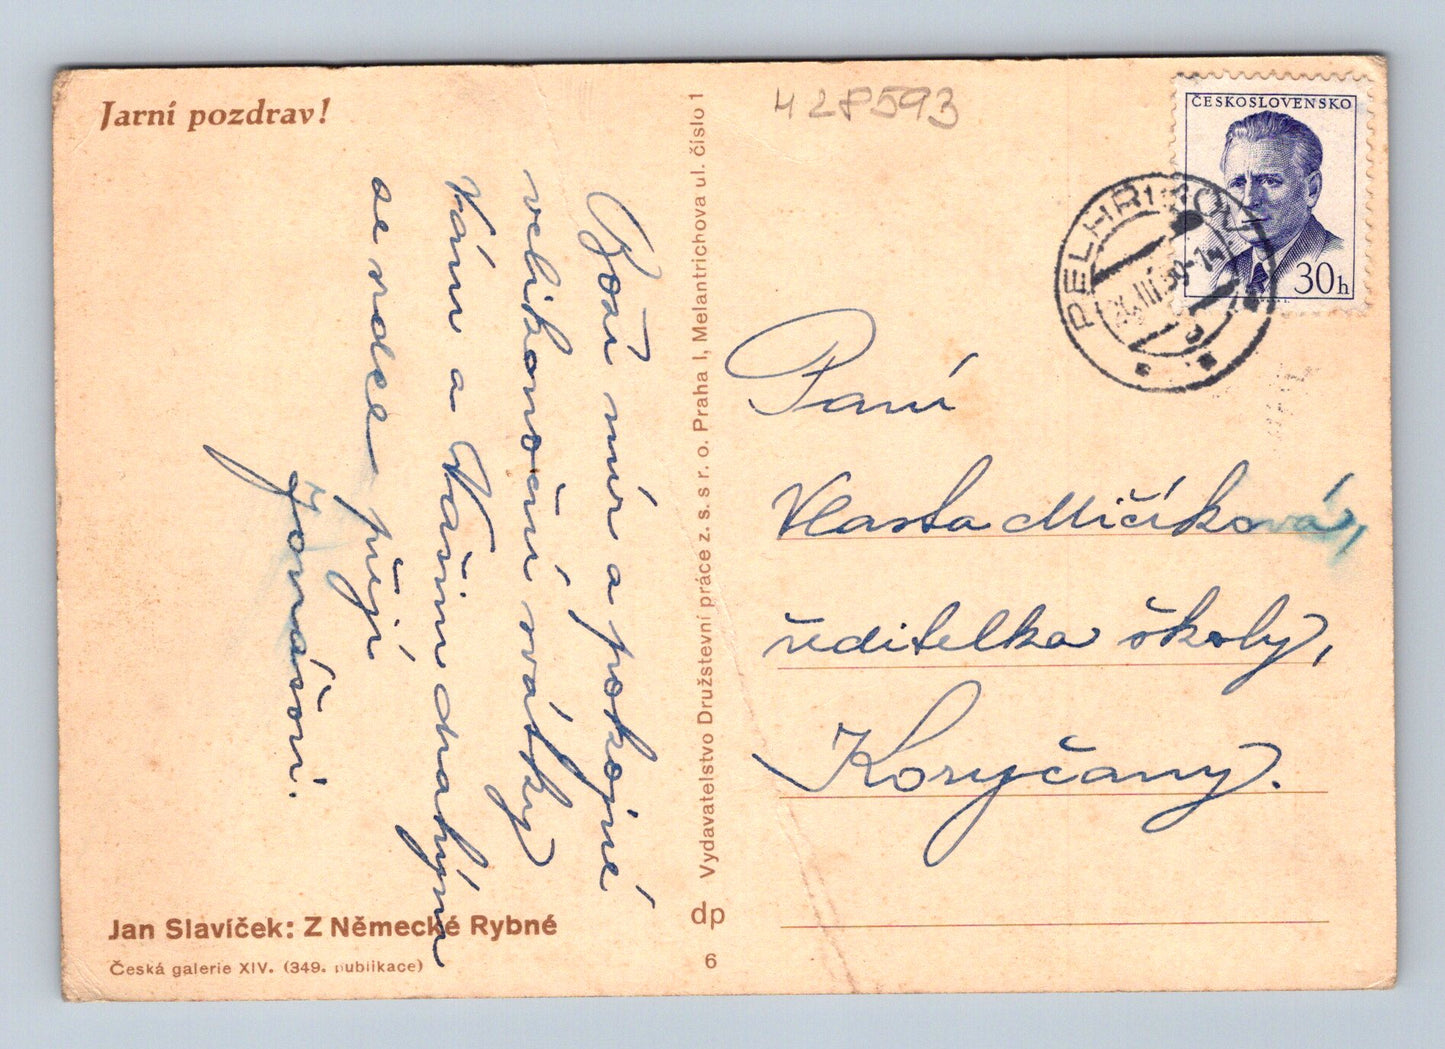 Jarní pozdrav!
428593
ČESKOSLOVENSKO
30h
PELHŘIMOV
Boží mír a pokojné
velikonoční svátky
Vám a Vašim drahým
ze srdce přejí
Jonášovi.
Vydavatelstvo Družstevní práce z. s. s r. o. Praha I, Melantrichova ul. číslo 1
dp
6
Paní
Vlasta Mičíková,
ředitelka školy,
Koryčany.
Jan Slavíček: Z Německé Rybné
Česká galerie XIV. (349. publikace)